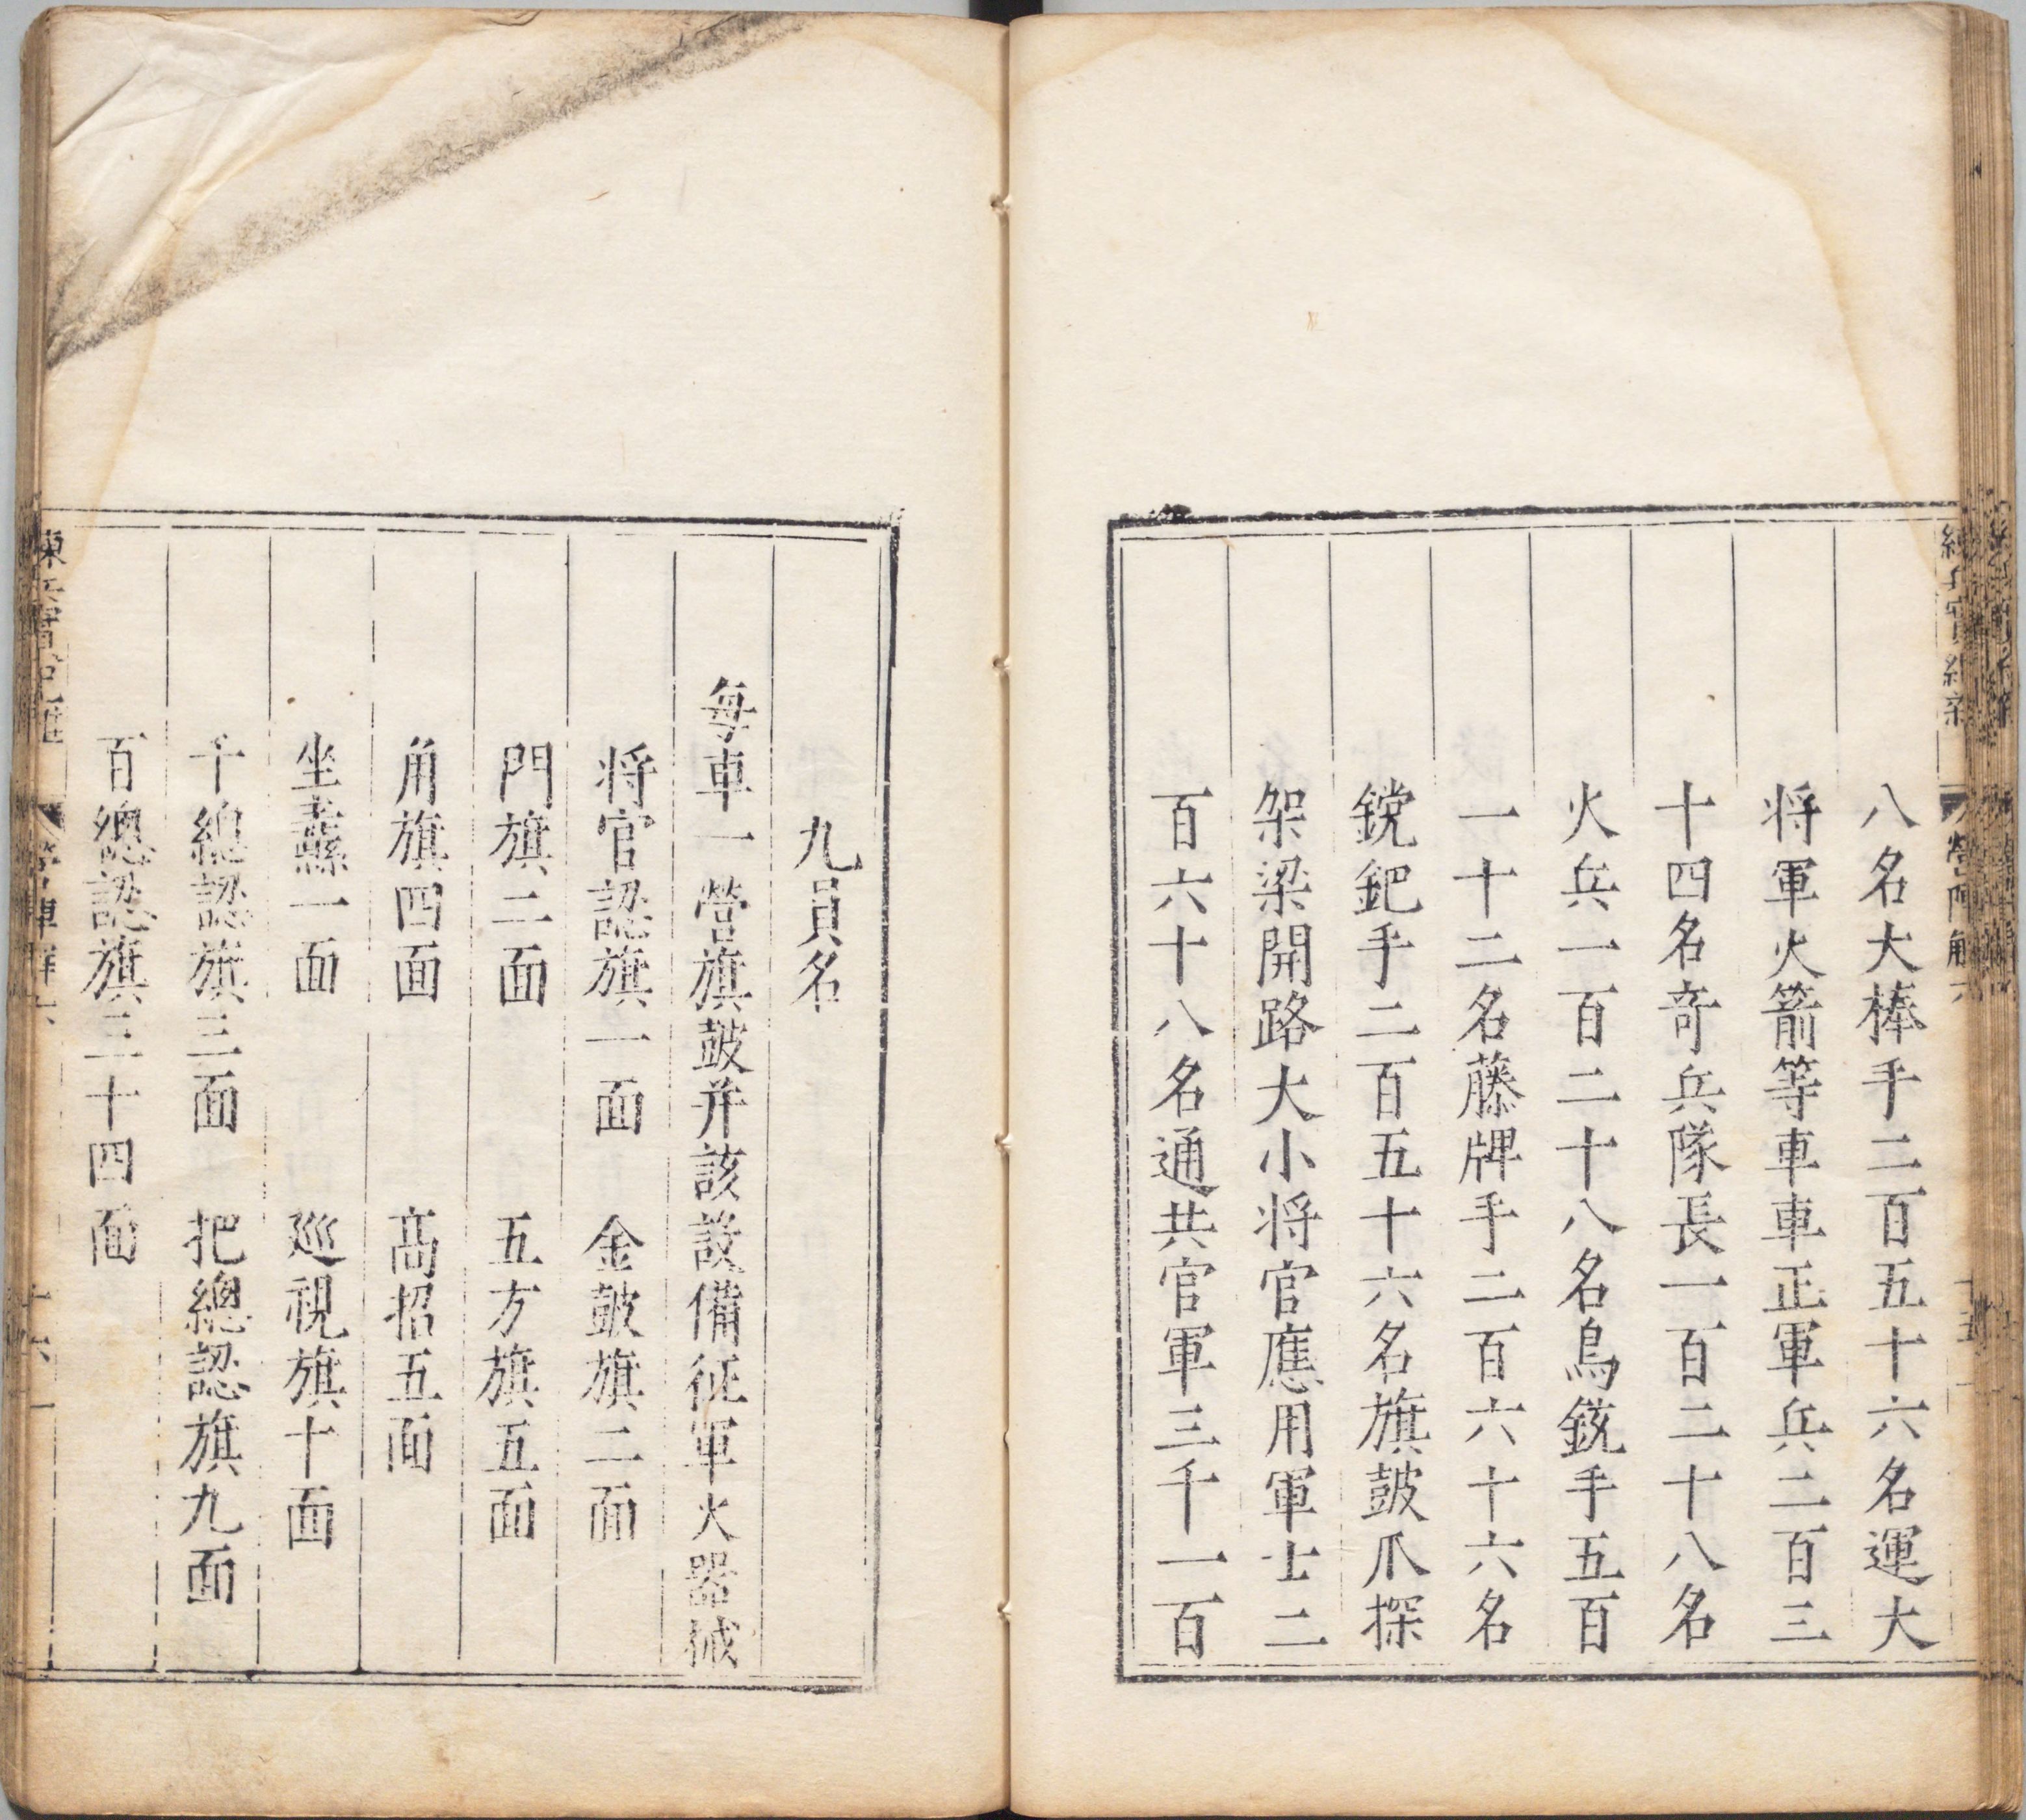 八名大棒手二百五十六名運大
将軍火箭等車車正軍兵二百三
十四名奇兵隊長一百二十八名
火兵一百二十八名鳥銃手五百
一十二名藤牌手二百六十六名
鎲鈀手二百五十六名旗鼓爪探
架梁開路大小将官應用軍士二
百六十八名通共官軍三千一百
九員名
每車一營旗鼓并該設備征軍火器械
将官認旗一面 金鼓旗二面
門旗二面 五方旗五面
角旗四面 髙招五面
坐纛一面 廵視旗十面
千總認旗三面 把總認旗九面
百總認旗三十四面